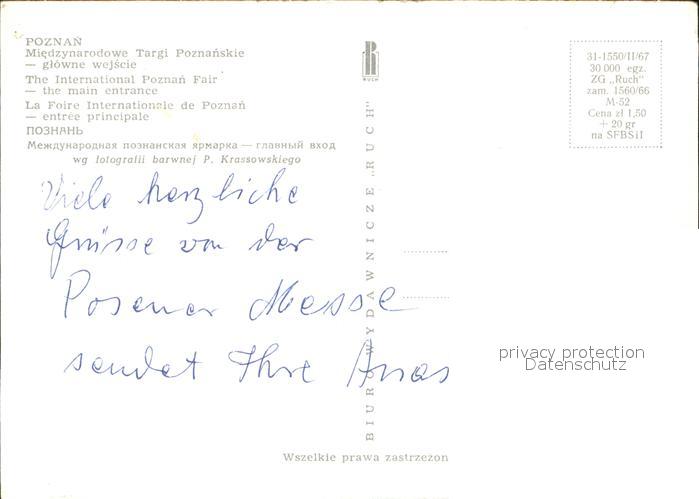 POZNAŃ
Międzynarodowe Targi Poznańskie
— główne wejście
The International Poznań Fair
— the main entrance
La Foire Internationale de Poznań
— entrée principale
ПОЗНАНЬ
Международная познанская ярмарка — главный вход
wg fotografii barwnej P. Krassowskiego
RUCH
31-1550/II/67
30 000 egz.
ZG „Ruch"
zam. 1560/66
M-52
Cena zł 1,50
+ 20 gr
na SFBSiI
Viele herzliche
Grüsse von der
Posener Messe
sendet Ihre
BIURO WYDAWNICZE „RUCH"
privacy protection
Datenschutz
Wszelkie prawa zastrzeżon